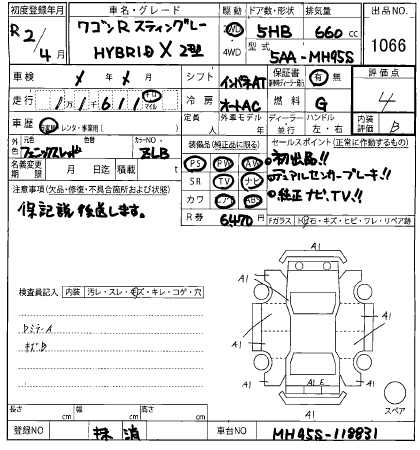 初度登録年月
車名・グレード
駆動
ドア数・形状
排気量
出品NO
R 2/4月
ワゴンR スティングレー
HYBRID X 2型
2WD
4WD
5HB
660 cc
型式
5AA-MH95S
1066
車検
シフト
インパネAT
保証書
有・無
評価点
4
走行
キロ
マイル
冷房
オートAC
燃料
G
車歴
自家用・レンタ・事業用( )
定員
人
外車モデル
年
ディーラー
並行
ハンドル
左・右
内装評価
B
外色
元色
フェニックスレッド
色替
カラーNO
ZLB
装備品(純正品に限る)
セールスポイント(正常に作動するもの)
名義変更期限
月
日迄
積載
t
PS
PW
AW
SR
TV
ナビ
カワ
エアB
ABS
R券
6470円
初出品!!
デュアルセンサーブレーキ!!
純正ナビ、TV!!
注意事項(欠品・修復・不具合箇所および状態)
保記説後送します。
Fガラス
トビ石・キズ・ヒビ・ワレ・リペア跡
検査員記入
内装
汚レ・スレ・キズ・キレ・コゲ・穴
キズB
A1
A1
A1
A1
A1
A1
A1
A1
スペア
長さ
cm
幅
cm
高さ
cm
登録NO
抹消
車台NO
MH95S-118831